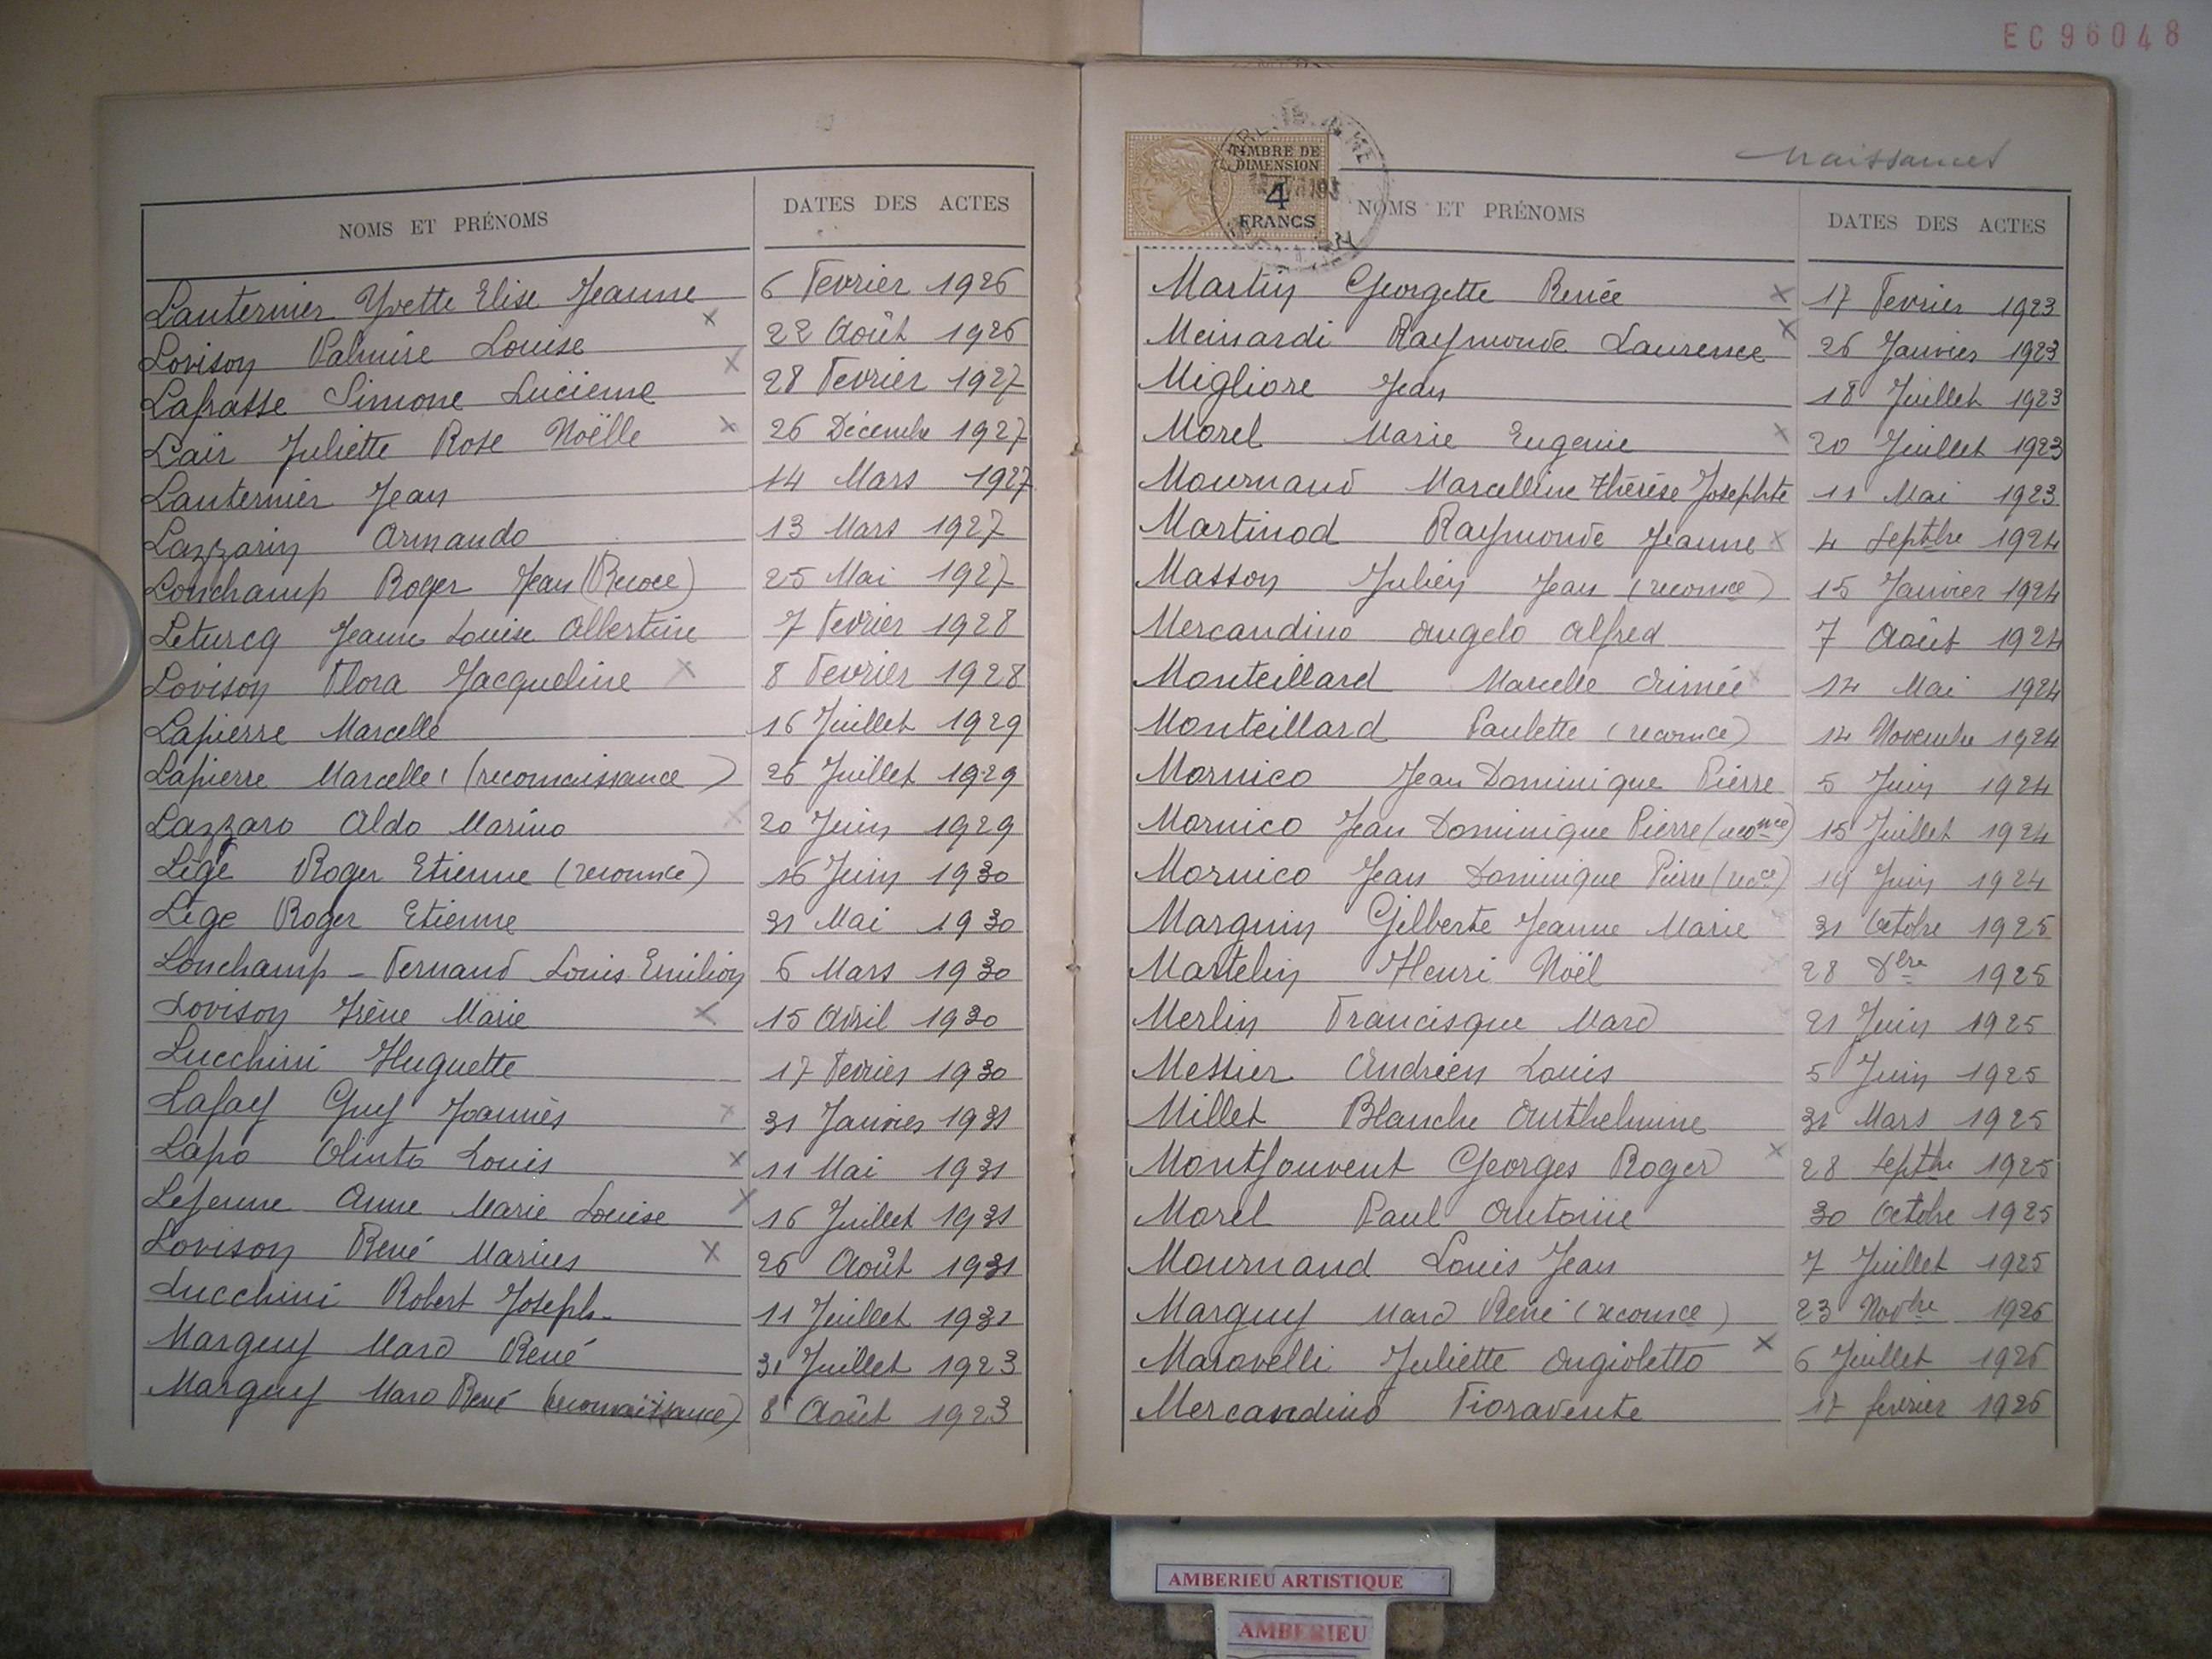 EC96048
NOMS ET PRÉNOMS DATES DES ACTES
Lauternier Yvette Elise Jeanne 6 Fevrier 1926
Lovison Palmire Louise x 22 Août 1926
Laprasse Simone Lucienne x 28 Fevrier 1927
Lair Juliette Rose Noëlle x 26 Décembre 1927
Lauternier Jean 14 Mars 1927
Lazzarin Armando 13 Mars 1927
Lonchamp Roger Jean (Recce) 25 Mai 1927
Leturcq Jeanne Louise Albertine 7 Fevrier 1928
Lovison Flora Jacqueline x 8 Fevrier 1928
Lapierre Marcelle 16 Juillet 1929
Lapierre Marcelle (reconnaissance) 26 Juillet 1929
Lazzaro Aldo Marino x 20 Juin 1929
Lége Roger Etienne (reconnce) 16 Juin 1930
Lége Roger Etienne 31 Mai 1930
Lonchamp - Fernand Louis Emilion 6 Mars 1930
Lovison Irène Marie x 15 Avril 1930
Lucchini Huguette 17 Fevrier 1930
Lafay Guy Joannès x 31 Janvier 1931
Lapo Olinto Louis x 11 Mai 1931
Lejeune Anne Marie Louise x 16 Juillet 1931
Lovison René Marius x 26 Août 1931
Lucchini Robert Joseph 11 Juillet 1931
Marguy Marc René 31 Juillet 1923
Marguy Marc René (reconnaissance) 8 Août 1923
TIMBRE DE
DIMENSION
4
FRANCS
Naissances
NOMS ET PRÉNOMS DATES DES ACTES
Martin Georgette Renée x 17 Fevrier 1923
Meinardi Raymonde Laurence x 26 Janvier 1923
Migliore Jean 18 Juillet 1923
Morel Marie Eugenie x 20 Juillet 1923
Mournaud Marcelline Thérèse Josephte 11 Mai 1923
Martinod Raymonde Jeanne x 4 Septbre 1924
Masson Julien Jean (reconnce) 15 Janvier 1924
Mercandino Angelo Alfred 7 Août 1924
Monteillard Marcelle Aimée x 14 Mai 1924
Monteillard Paulette (reconnce) 14 Novembre 1924
Mornico Jean Dominique Pierre 5 Juin 1924
Mornico Jean Dominique Pierre (reconce) 15 Juillet 1924
Mornico Jean Dominique Pierre (recce) Juin 1924
Marguin Gilberte Jeanne Marie 31 Octobre 1925
Martelin Henri Noël 28 Xbre 1925
Merlin Francisque Marc 21 Juin 1925
Messier Andréen Louis 5 Juin 1925
Millet Blanche Anthelmine 31 Mars 1925
Montfouvent Georges Roger x 28 Septbre 1925
Morel Paul Antoine 30 Octobre 1925
Mournaud Louis Jean 7 Juillet 1925
Marguy Marc René (reconnce) 23 Novbre 1926
Maravelli Juliette Angioletto x 6 Juillet 1926
Mercandino Fioravente 17 fevrier 1926
AMBERIEU ARTISTIQUE
AMBERIEU